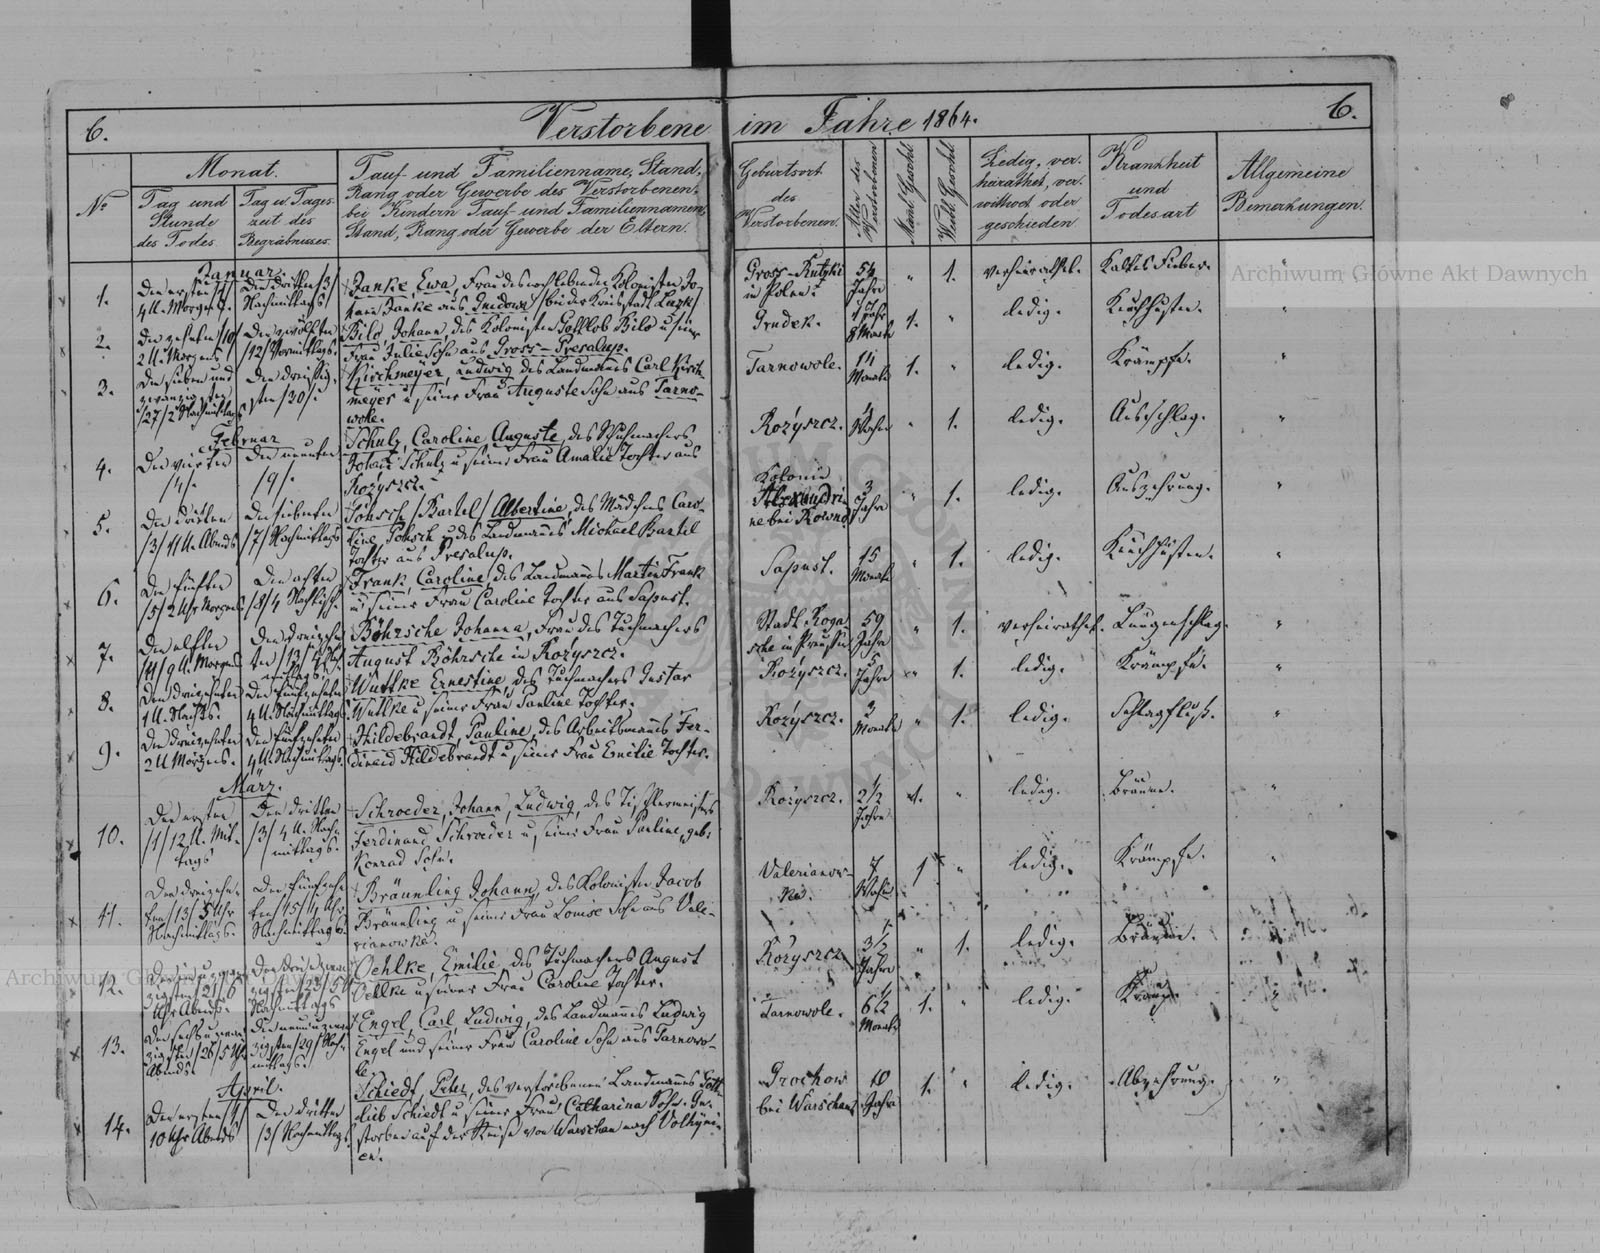 6.
Verstorbene im Jahre 1864.
6.
No
Monat.
Tag und Stunde des Todes.
Tag u. Tageszeit des Begräbnisses.
Tauf und Familienname, Stand,
Rang oder Gewerbe des Verstorbenen.
bei Kindern Tauf- und Familiennamen,
Stand, Rang oder Gewerbe der Eltern.
Geburtsort
des
Verstorbenen.
Alter des Verstorbenen
Männl. Geschl.
Weibl. Geschl.
Ledig, ver-
heirathet, ver-
wittwet oder
geschieden
Krankheit
und
Todesart
Allgemeine
Bemerkungen.
Januar.
1.
Den ersten /1/
4 U. Morgens.
Den dritten /3/
Nachmittags
Janke, Ewa, Frau des noch lebenden Kolonisten Jo-
hann Janke aus bei der Kreisstadt Luzk
Gross-
in Polen
54
Jahre
"
1.
verheirathet.
Kaltes Fieber.
"
2.
Den zehnten /10/
2 U. Morgens
Den zwölften
/12/ Vormittags.
Bild, Johann, des Kolonisten Gottlob Bild u seiner
Frau Julie Sohn aus Gross-Presalup.
Grudek.
1 Jahr
8 Monate
1.
"
ledig.
Keuchhusten.
"
3.
Den sieben und
zwanzigsten
/27/ 2 Nachmittags
Den dreißig-
sten /30/.
Kirschmeyer, Ludwig des Landmannes Carl Kirsch-
meyer u seiner Frau Auguste Sohn aus Tarno-
wole.
Tarnowole.
14
Monate
1.
"
ledig.
Krämpfe.
"
Februar
4.
Den vierten
/4/.
Den neunten
/9/.
Schulz, Caroline Auguste, des Schuhmachers
Johann Schulz u seiner Frau Amalie Tochter aus
Rożyszcz.
Rożyszcz.
4
Wochen
"
1.
ledig.
Ausschlag.
"
5.
Den dritten
/3/ 11 U. Abends
Den siebenten
/7/ Nachmittags
Johsch /Bartel/ Albertine, des Mädchens Caro-
line Johsch u des Landmannes Michael Bartel
Tochter aus Presalup.
Kolonie
Alexandri-
ne bei Rowno
3
Jahre
"
1.
ledig.
Auszehrung.
"
6.
Den fünften
/5/ 2 Uhr Morgens
Den achten
/8/ 4
Frank, Caroline, des Landmanns Martin Frank
u seiner Frau Caroline Tochter aus Sapust.
Sapust.
15
Monate
"
1.
ledig.
Keuchhusten.
"
7.
Den elften
/11/ 9 U. Morgens
Den dreizehn-
ten /13/
Böhrsche Johanna, Frau des Tuchmachers
August Böhrsche in Rożyszcz.
Stadt Roga-
sche in Preussen
59
Jahre
"
1.
verheirathet.
Lungenschlag.
"
8.
Den dreizehnten
1 U. Nachts.
Den fünfzehnten
4 U. Nachmittags
Wuttke Ernestine, des Tuchmachers Gustav
Wuttke u seiner Frau Pauline Tochter.
Rożyszcz.
5
Jahre
"
1.
ledig.
Krämpfe.
"
9.
Den dreizehnten
2 U Morgens.
Den fünfzehnten
4 U. Nachmittags.
Hildebrandt, Pauline, des Arbeitsmanns Fer-
dinand Hildebrandt u seiner Frau Emilie Tochter.
Rożyszcz.
3
Monate
"
1.
ledig.
Schlagfluß.
"
März.
10.
Den ersten
/1/ 12 U. Mit-
tags
Den dritten
/3/ 4 U. Nach-
mittags.
Schroeder, Johann, Ludwig, des Tischlermeisters
Ferdinand Schroeder u seiner Frau Pauline, geb:
Konrad Sohn.
Rożyszcz.
2 1/2
Jahre
1.
"
ledig.
Bräune.
"
11.
Den dreizehn-
ten /13/ 5 Uhr
Nachmittags.
Den fünfzehn-
ten /15/ 4 Uhr
Nachmittags.
Bräunling Johann, des Kolonisten Jacob
Bräunling u seiner Frau Louise Sohn aus Vale-
rianowka.
Valerianow-
ka.
7
Wochen
1
"
ledig.
Krämpfe.
"
12.
zigsten /21/ 6
Uhr Abends.
Nachmittags
Oehlke, Emilie, des Tuchmachers August
Oehlke u seiner Frau Caroline Tochter.
Rożyszcz
3 1/2
Jahre
"
1.
ledig.
Bräune.
"
13.
Den sechsundzwan-
zigsten /26/ 5 Uhr
Abends.
Den neunundzwan-
zigsten /29/ Nach-
mittags.
Engel, Carl, Ludwig, des Landmanns Ludwig
Engel und seiner Frau Caroline Sohn aus Tarnowo-
le.
Tarnowole.
6 1/2
Monate
1.
"
ledig.
"
April.
14.
Den ersten /1/
10 Uhr Abends
Den dritten
/3/ Nachmittags.
Schiedt, Peter, des verstorbenen Landmannes Gott-
lieb Schiedt u seiner Frau Catharina Sohn. Ge-
storben auf der Reise von Warschau nach Volhyni-
en.
Grochow
bei Warschau
10
Jahre
1.
"
ledig.
Abzehrung.
"
Archiwum Główne Akt Dawnych
Archiwum Główne Akt Dawnych